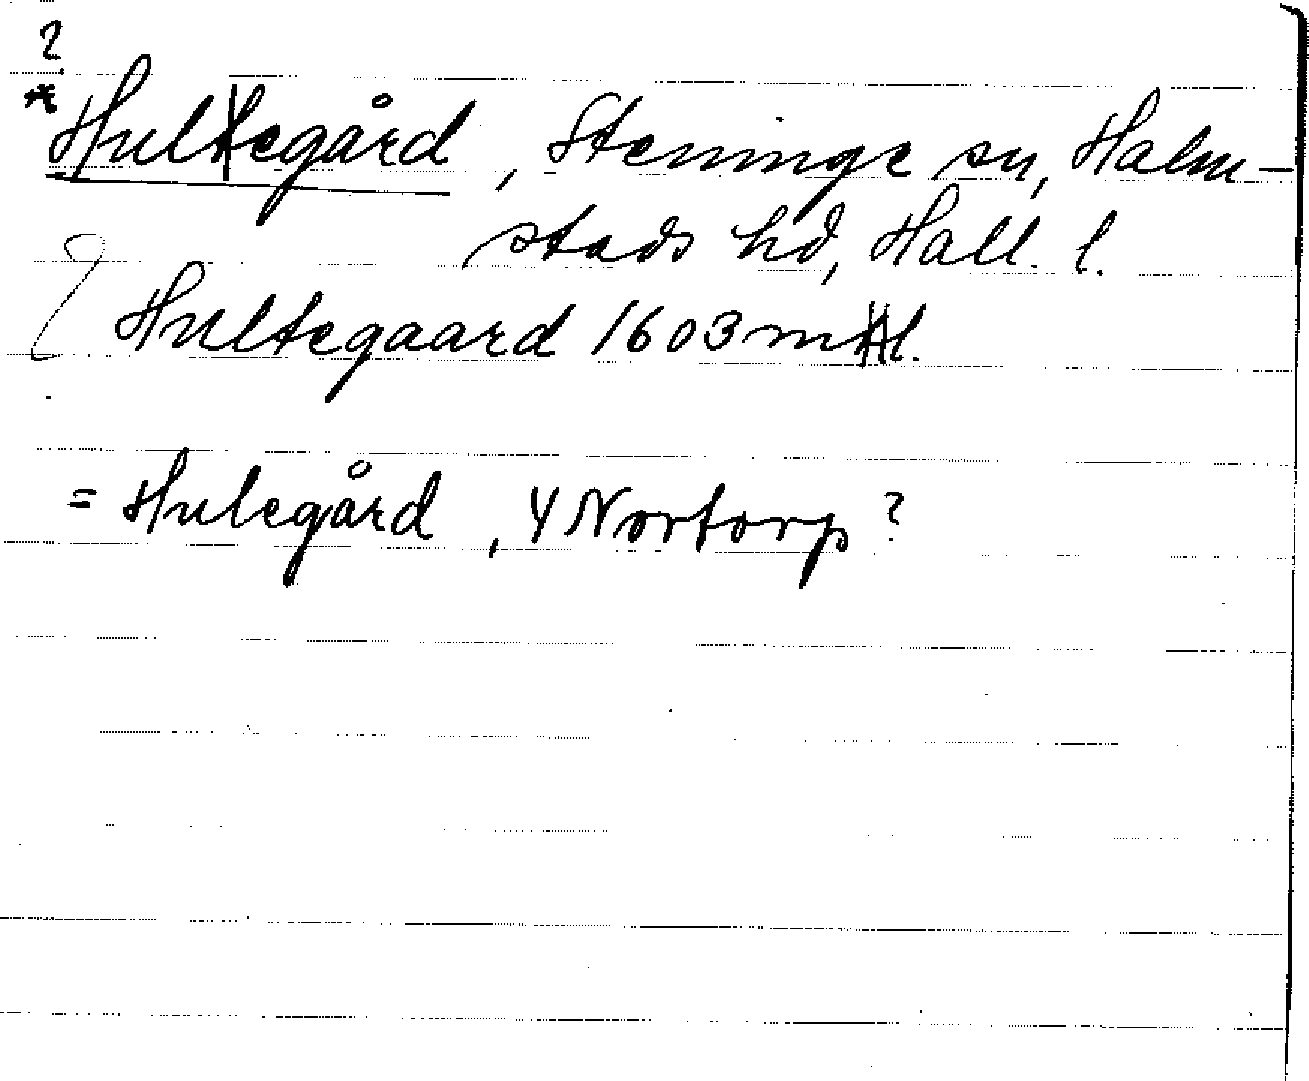 ?
* Hultegård, Steninge sn, Halm-
stads hd, Hall. l.
Hultegaard 1603 mtl.
= Hulegård, Y Nortorp?